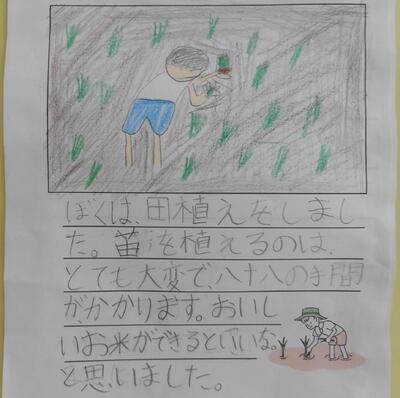 ぼくは、田植えをしまし
た。苗を植えるのは、
とても大変で、八十八の手間
がかかります。おいし
いお米ができるといいな。
と思いました。